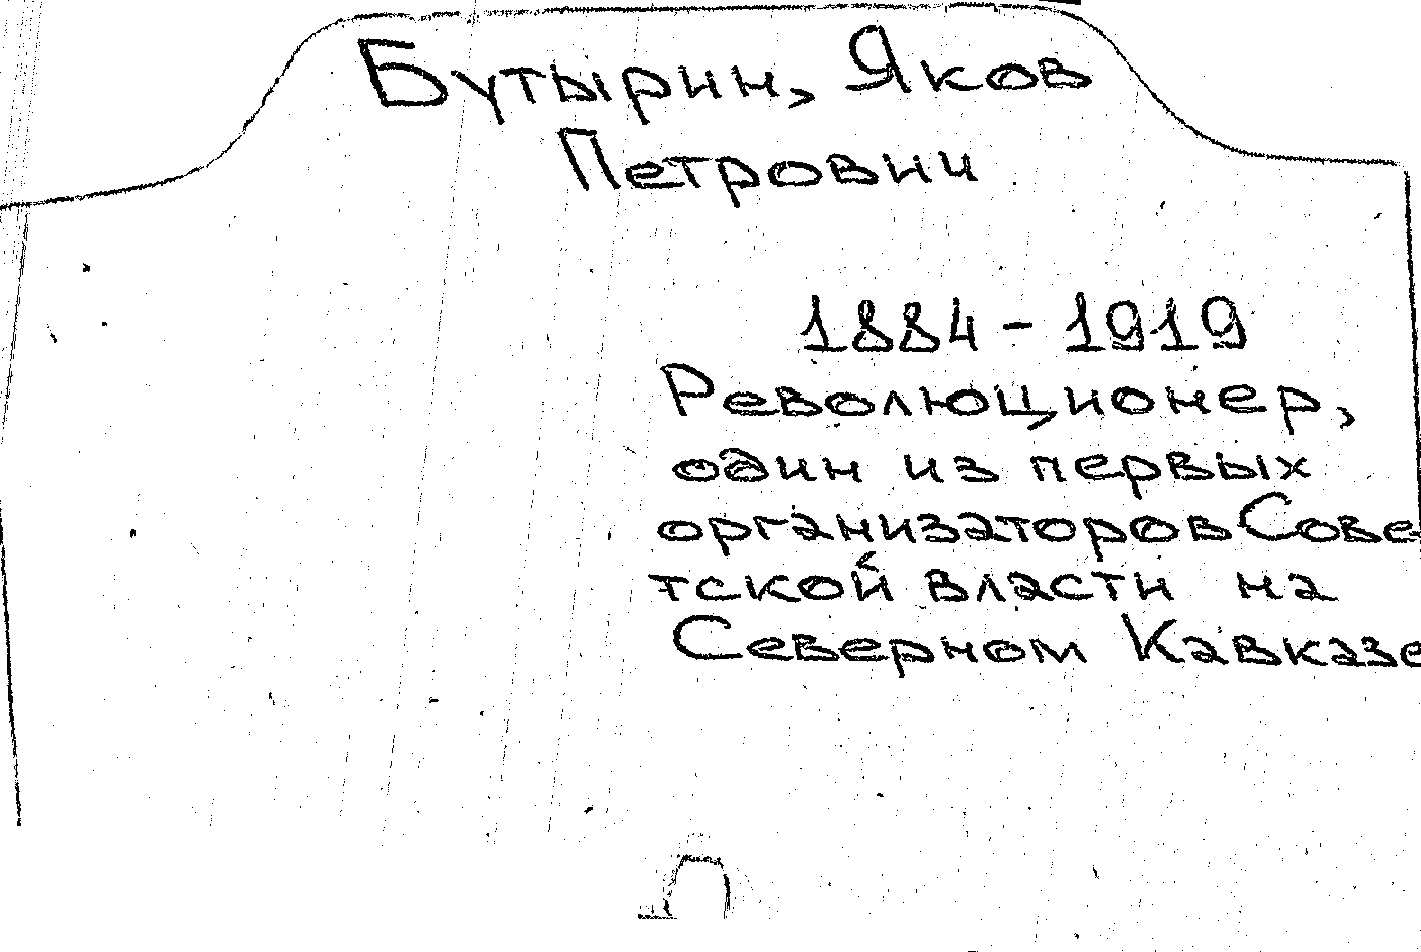 Бутырин, Яков
Петрович
1884 - 1919
Революционер,
один из первых
организаторов Сове-
тской власти на
Северном Кавказе